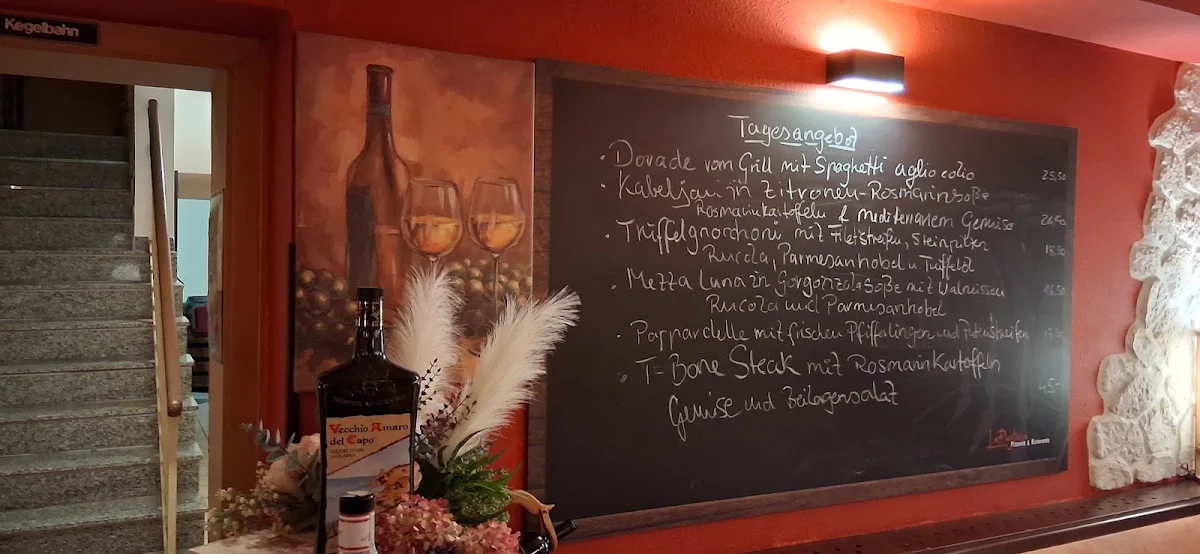 Kegelbahn
Tagesangebot
· Dorade vom Grill mit Spaghetti aglio e olio 25,50
· Kabeljau in Zitronen-Rosmarinsoße
Rosmarinkartoffeln & mediterranem Gemüse 26,50
· Trüffelgnocchoni mit Filetstreifen, Steinpilzen
Rucola, Parmesanhobel u Trüffelöl
· Mezza Luna in Gorgonzolasoße mit Walnüssen 16,50
Rucola und Parmesanhobel
· Pappardelle mit frischen Pfifferlingen und Putenstreifen
· T-Bone Steak mit Rosmarinkartoffeln
Gemüse und Beilagensalat 45,-
Pizzeria & Ristorante
Vecchio Amaro
del Capo